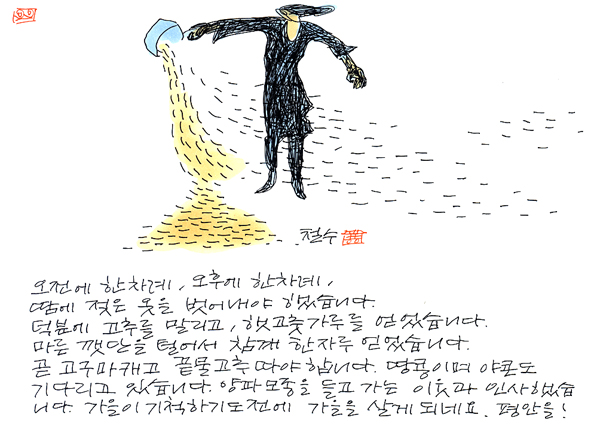 철수
오전에 한차례, 오후에 한차례,
땀에 젖은 옷을 벗어내야 했었습니다.
덕분에 고추를 말리고, 햇고춧가루를 얻었습니다.
마른 깻단을 털어서 참깨 한자루 얻었습니다.
곧 고구마캐고 끝물고추 따야합니다. 땅콩이며 야콘도
기다리고 있습니다. 양파모종을 들고 가는 이웃과 인사했습
니다. 가을이 기척하기도전에 가을을 살게 되네요. 평안을!